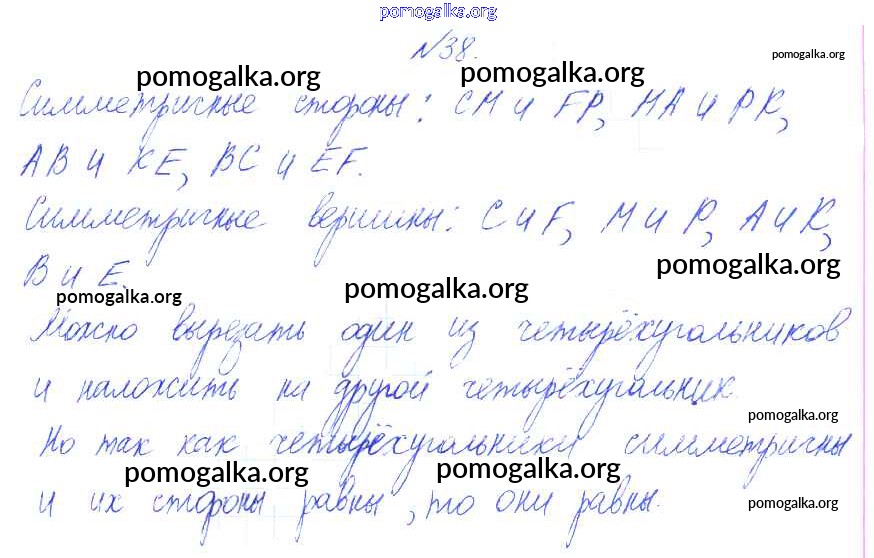 pomogalka.org
№38.
pomogalka.org
pomogalka.org pomogalka.org
Симметричные стороны: CM и FP, MA и PK,
AB и KE, BC и EF.
Симметричные вершины: C и F, M и P, A и K,
B и E.
pomogalka.org
pomogalka.org pomogalka.org
Можно вырезать один из четырёхугольников
и наложить на другой четырёхугольник.
pomogalka.org
Но так как четырёхугольники симметричны
pomogalka.org pomogalka.org
и их стороны равны, то они равны.
pomogalka.org